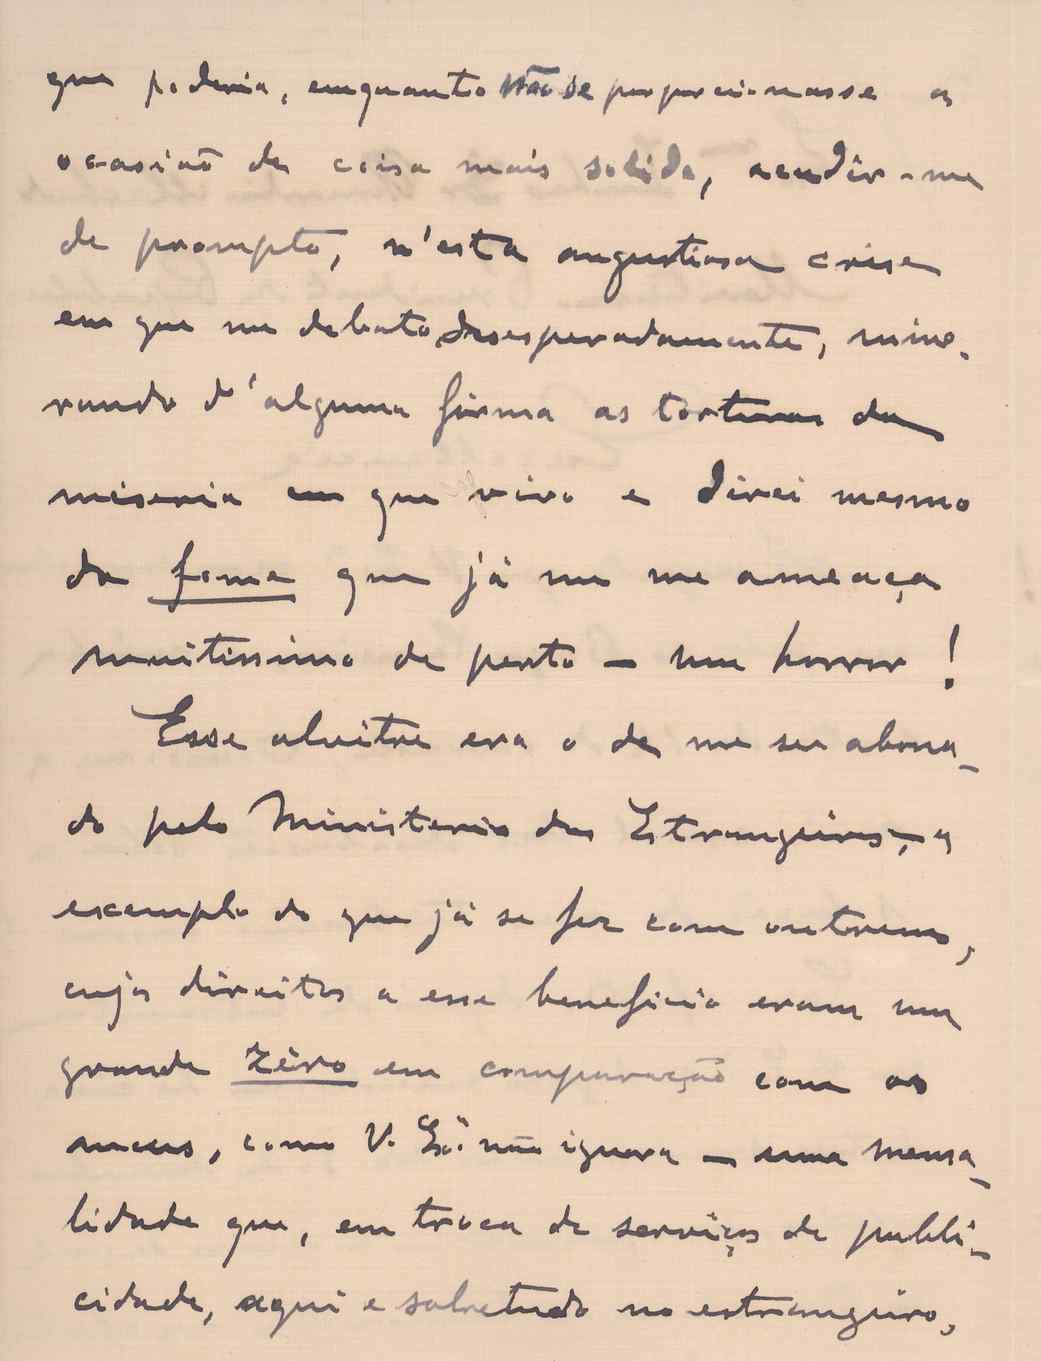 que poderia, emquanto não se proporcionasse a
ocasião de coisa mais solida, acudir-me
de prompto, n'esta angustiosa crise
em que me debato desesperadamente, mino-
rando d'alguma fórma as torturas da
miseria em que vivo e direi mesmo
da fome que já me me ameaça
muitissimo de perto — um horror!
Esse alvitre era o de me ser abona-
do pelo Ministerio dos Estrangeiros, — a
exemplo do que já se fez com outrem,
cujos direitos a esse beneficio eram um
grande zéro em comparação com os
meus, como V. Exª. não ignora — uma mensa-
lidade que, em troca de serviços de publi-
cidade, aqui e sobretudo no estrangeiro,